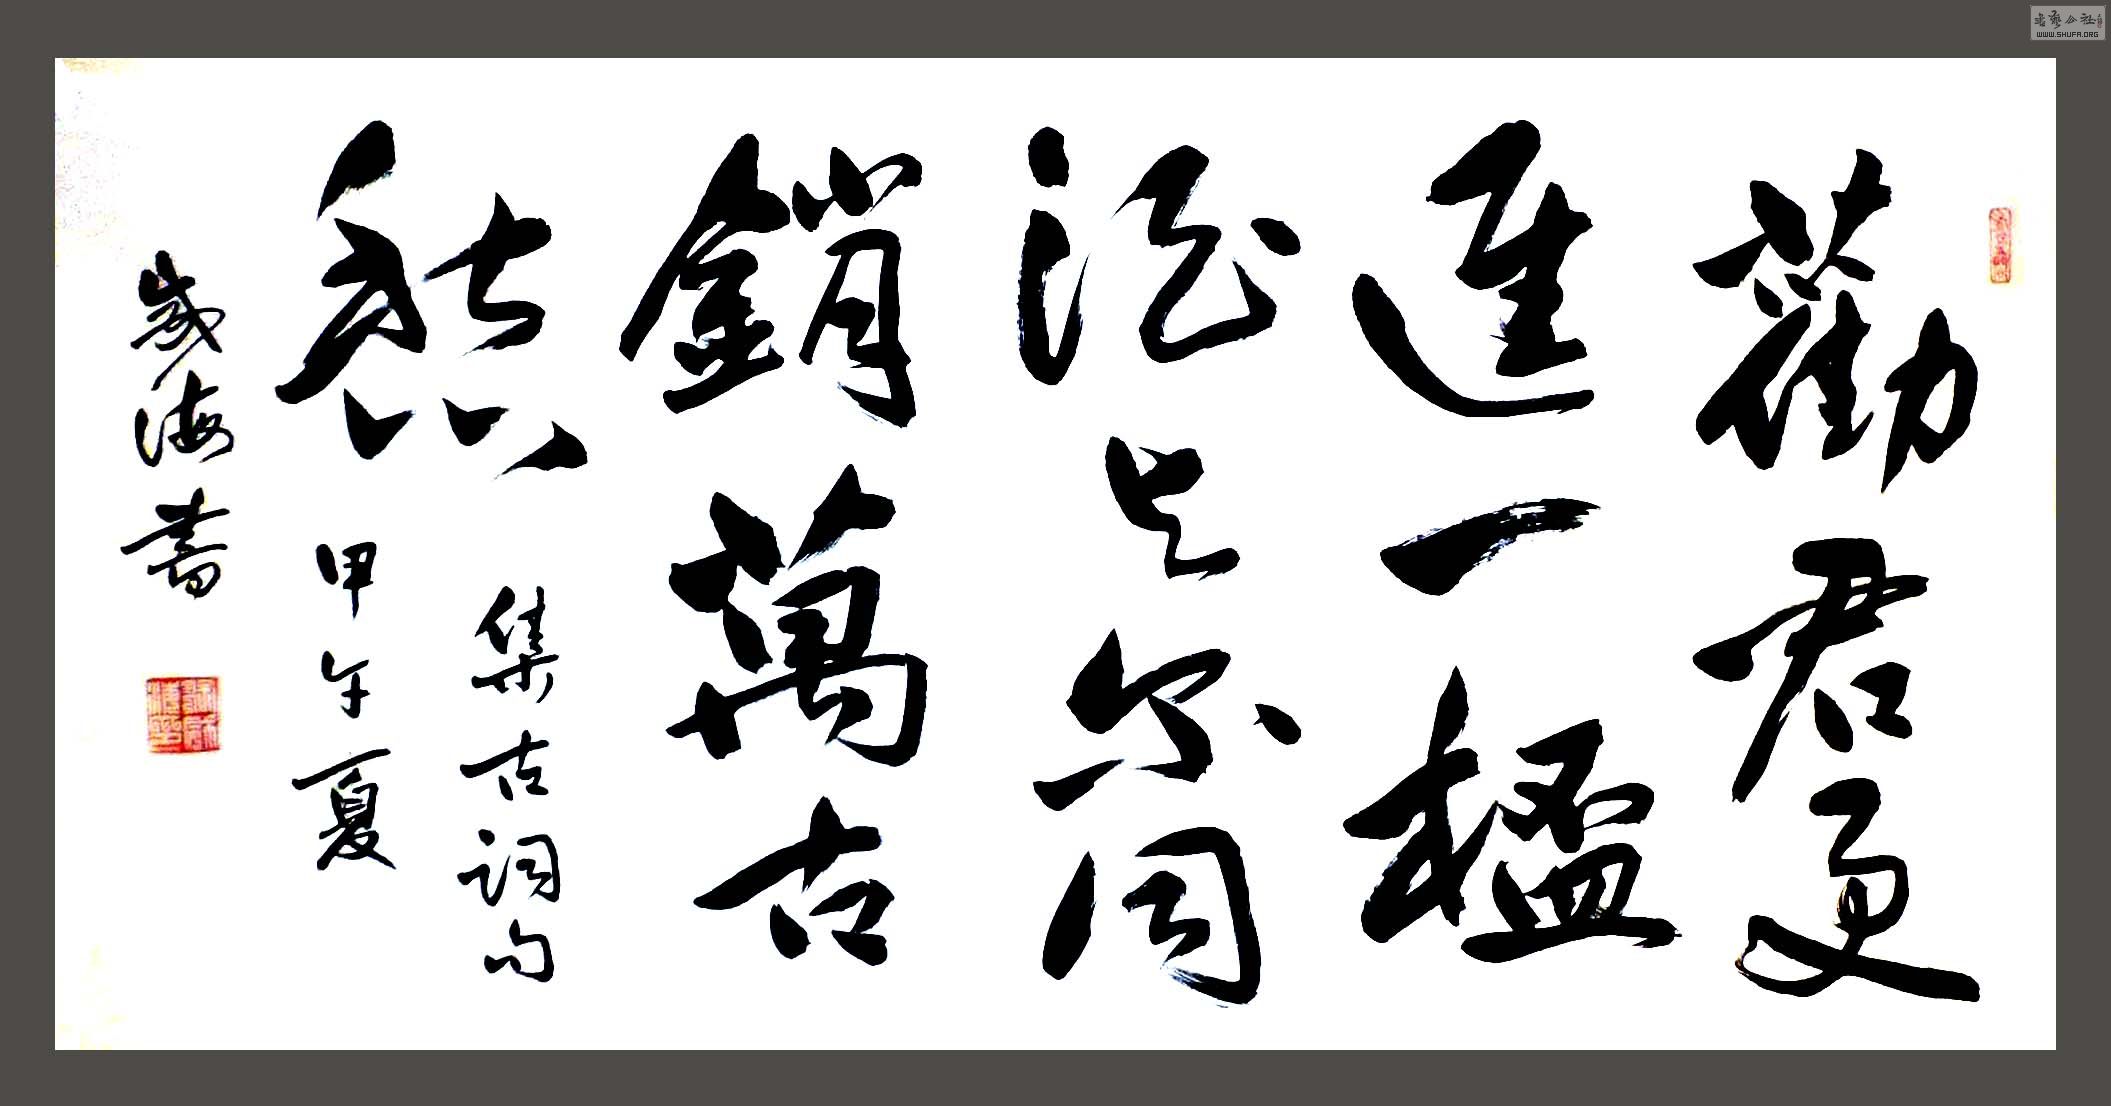 勸君更
進一榲
酒与尔同
銷萬古
愁
集古詞句
甲午夏
海書
WWW.SHUFA.ORG